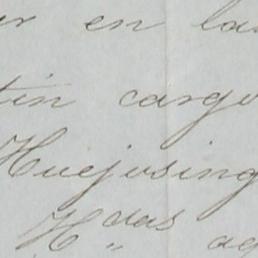 en la
tin cargo
Huejosing
H das ag